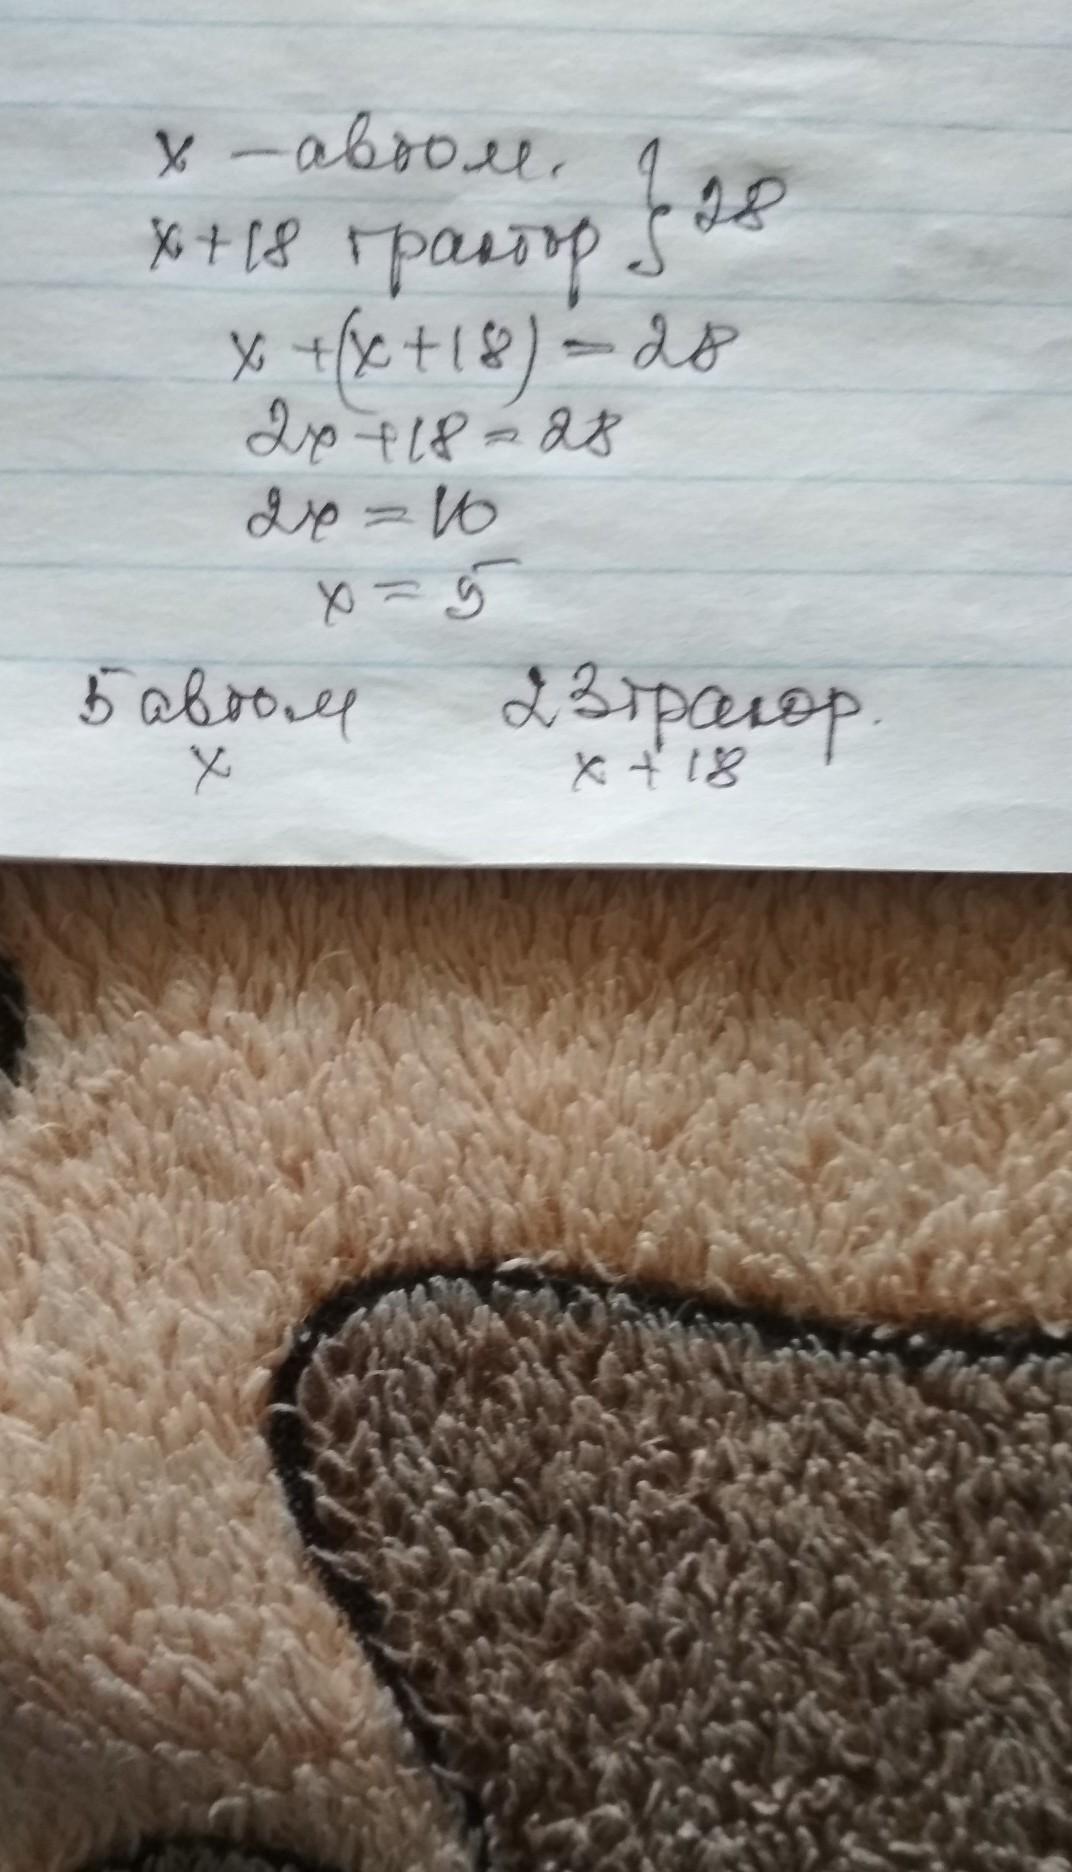 x – автом. } 28
x+18 трактор
x+(x+18)=28
2x+18=28
2x=10
x=5
5 автом 23 трактор.
x x+18